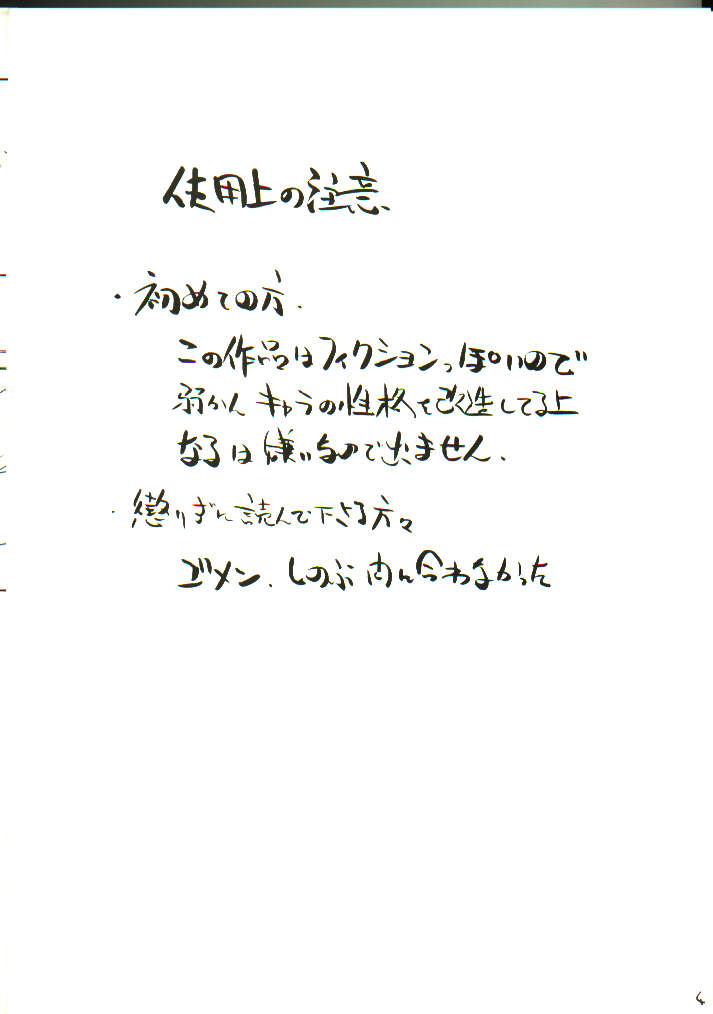 使用上の注意
・初めての方.
この作品はフィクションっぽいので
弱かん キャラの性格を改造してる上
なるは嫌いなので出ません.
・懲りずに読んで下さる方々
ゴメン. しのぶ 内に合わなかった